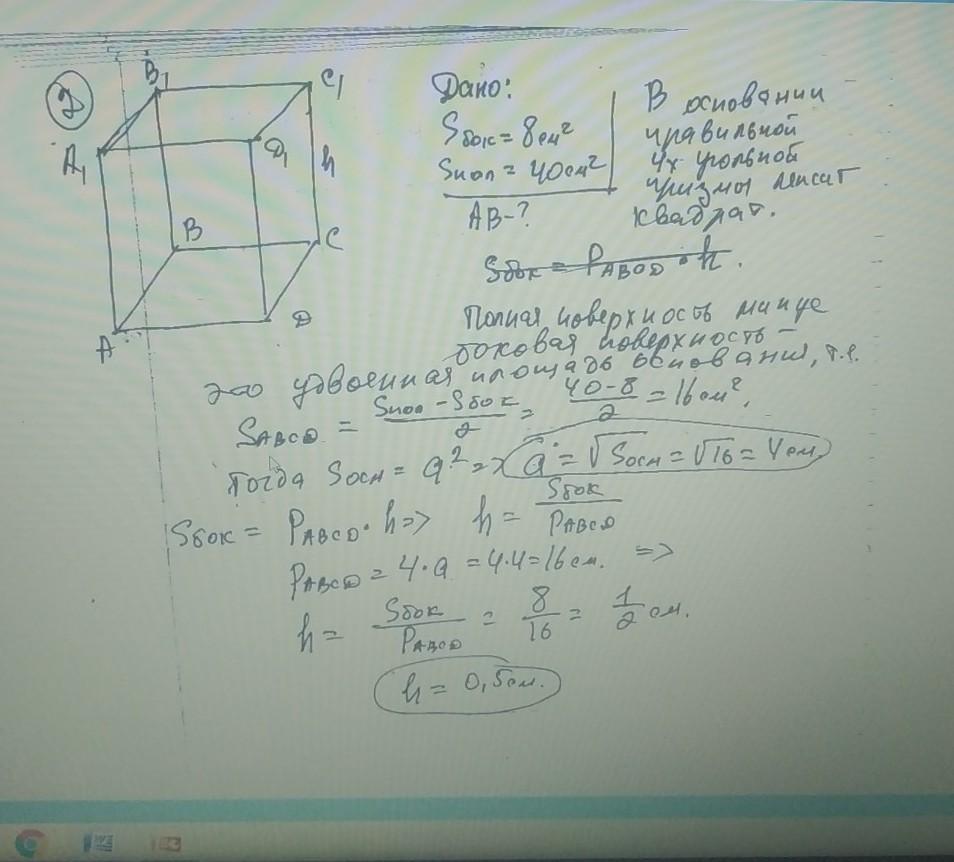 2
B₁
C₁
A₁
D₁
h
B
C
A
D
Дано:
Sбок = 8см²
Sпол = 40см²
AB-?
В основании
правильной
4х угольной
призмы лежит
квадрат.
Sбок = P_ABCD · h.
Полная поверхность минус
боковая поверхность –
это удвоенная площадь основания, т.е.
S_ABCD = (Sпол - Sбок)/2 = (40-8)/2 = 16см²,
тогда Sосн = a² => a = √Sосн = √16 = 4см.
Sбок = P_ABCD · h => h = Sбок/P_ABCD
P_ABCD = 4·a = 4·4 = 16см. =>
h = Sбок/P_ABCD = 8/16 = 1/2 см.
h = 0,5см.